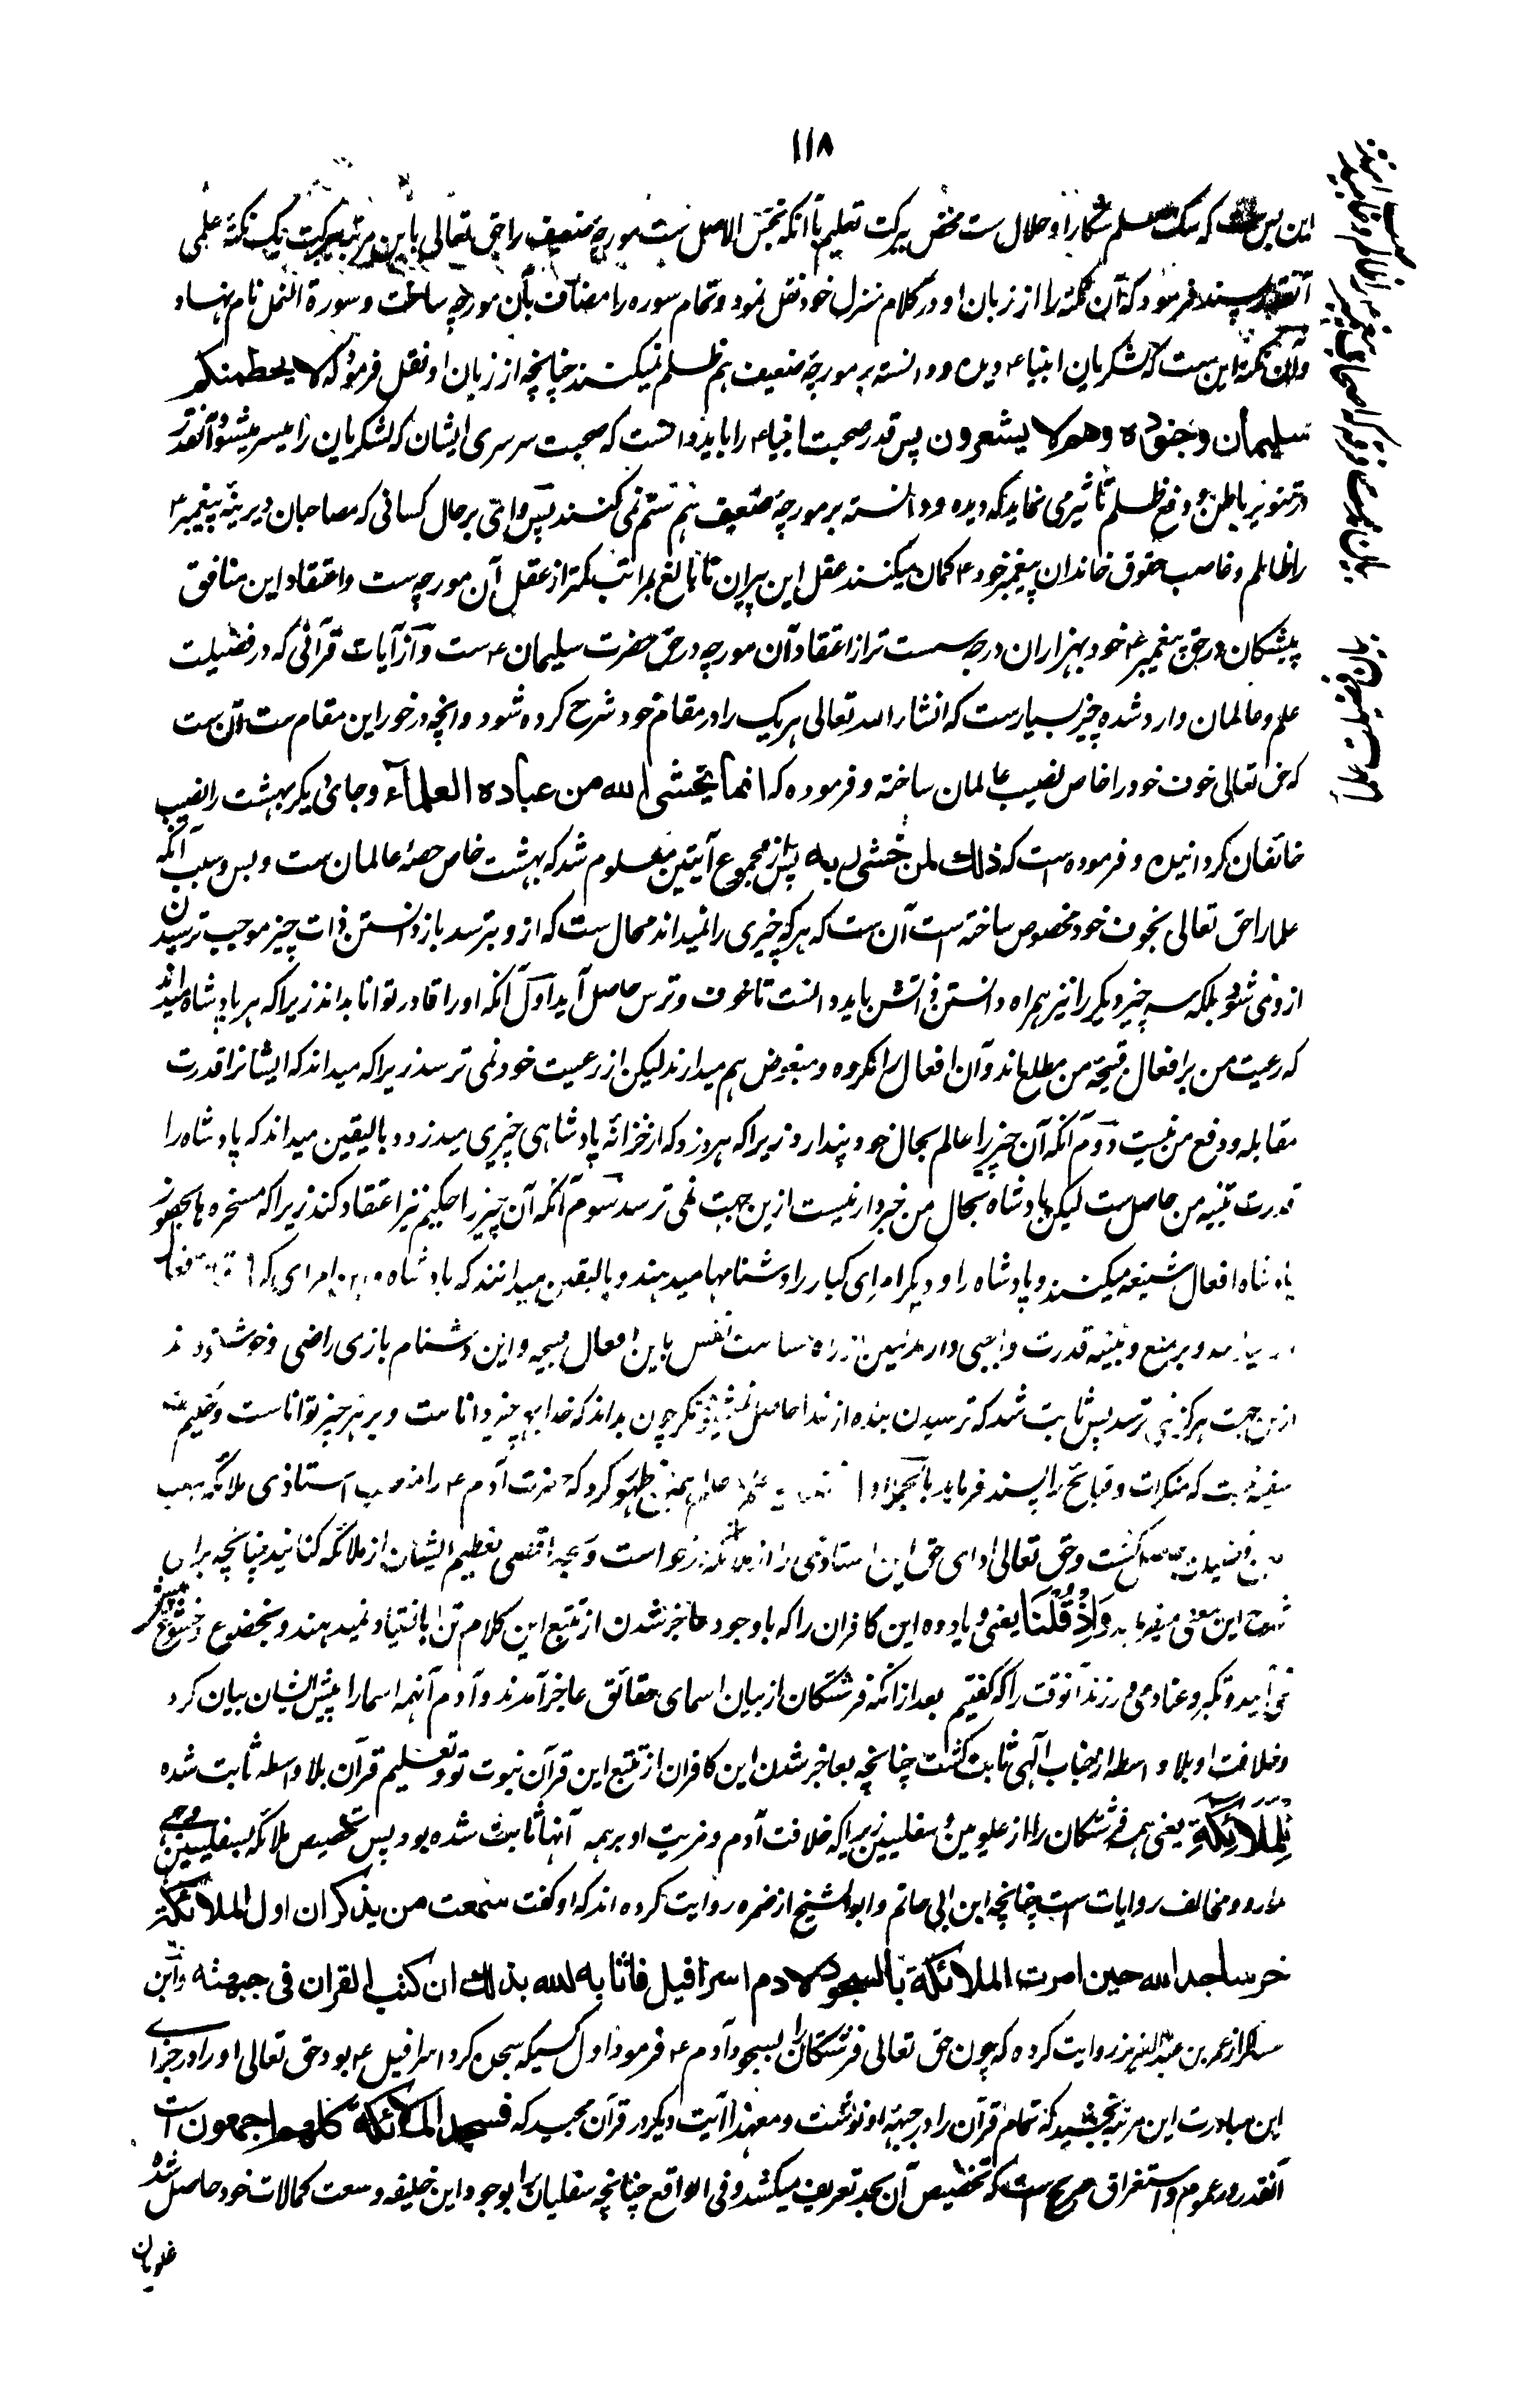 ۱۱۸
این بس است که سگ معلم شکار او حلال ست محض ببرکت تعلیم با آنکه نجس الاصل ست مورچهٔ ضعیف را حق تعالی باین مرتبه ببرکت یک نکتهٔ علمی
آنقدر پسند فرمود که آن نکته را از زبان او در کلام منزل خود نقل نمود و تمام سوره را مضاف بآن مورچه ساخت و سورة النمل نام نهاد
و آن نکته این ست که لشکریان انبیاء دیده و دانسته بر مورچهٔ ضعیف هم ظلم نمیکنند چنانچه از زبان او نقل فرمود که لا یحطمنکم
سلیمان و جنوده وهم لا یشعرون پس قدر صحبت انبیاء را باید دانست که صحبت سرسری ایشان که لشکریان را میسر میشود آنقدر
در تنویر باطن و دفع ظلم تاثیر می نماید که دیده و دانسته بر مورچهٔ ضعیف هم ستم نمی کنند پس وای بر حال کسانی که مصاحبان دیرینهٔ پیغمبر ؑ
را ظالم و غاصب حقوق خاندان پیغمبر خود ؑ گمان میکنند عقل این پیران نابالغ بمراتب کمتر از عقل آن مورچه ست و اعتقاد این منافق
پیشگان در حق پیغمبر ؑ خود بهزاران درجه سست تر از اعتقاد آن مورچه در حق حضرت سلیمان ؑ ست و از آیات قرآنی که در فضیلت
علم و عالمان وارد شده چیز بسیار ست که انشاء الله تعالی هر یک را در مقام خود شرح کرده شود و انچه در خور این مقام ست آن ست
که حق تعالی خوف خود را خاص نصیب عالمان ساخته و فرموده که انما یخشی الله من عباده العلمآء و جای دیگر بهشت را نصیب
خائفان گردانیده و فرموده است که ذلك لمن خشی ربه پس از مجموع آیتین معلوم شد که بهشت خاص حصهٔ عالمان ست و بس و سبب آنکه
علما را حق تعالی بخوف خود مخصوص ساخته است آن ست که هر که چیزی را نمیداند محال ست که از و بترسد باز دانستن ذات چیز موجب ترسیدن
از و نمی شود بلکه سه چیز دیگر را نیز همراه دانستن ذاتش باید دانست تا خوف و ترس حاصل آید اول آنکه او را قادر توانا بداند زیرا که هر پادشاه میداند
که رعیت من بر افعال قبیحهٔ من مطلع اند و آن افعال را مکروه و مبغوض هم میدارند لیکن از رعیت خود نمی ترسد زیرا که میداند که ایشانرا قدرت
مقابله و دفع من نیست دوم آنکه آن چیز را عالم بحال خود پندارد زیرا که هر دزد که از خزانهٔ پادشاهی چیزی میدزدد بالیقین میداند که پادشاه را
قدرت تنبیه من حاصل ست لیکن پادشاه بحال من خبردار نیست ازین جهت نمی ترسد سوم آنکه آن چیز را حکیم نیز اعتقاد کند زیرا که مسخره ها بحضور
پادشاه افعال شنیعه میکنند و پادشاه را و دیگر امرای کبار را دشنامها میدهند و بالیقین میدانند که پادشاه
و بر منع و تنبیه قدرت واجبی دارند لیکن از راه نفس باین افعال قبیحه و این دشنام بازی راضی و خوشنودند
ازین جهت هرگز نمی ترسد پس ثابت شد که ترسیدن بنده از خدا حاصل نمیشود مگر چون بداند که خدا بهمه چیز دانا ست و بر هر چیز توانا ست و حکیم
نیست که منکرات و قبائح را پسند فرماید بالجمله اول علم همین ظهور کرد که حضرت آدم ؑ را منصب استاذی ملائکه
گشت و حق تعالی ادای حق این استاذی را از ملائکه درخواست و بحد اقصی تعظیم ایشان از ملائکه کنانید چنانچه برای
این معنی میفرماید وَاِذْ قُلْنَا یعنی و یاد ده این کافران را که باوجود عاجز شدن از تتبع این کلام تن بانقیاد نمیدهند و بخضوع و خشوع پیش
نمی آیند و تکبر و عناد می ورزند آنوقت را که گفتیم بعد از آنکه فرشتگان از بیان اسمای حقائق عاجز آمدند و آدم آنهمه اسما را پیش ایشان بیان کرد
و خلافت او بلا واسطه از جناب الهی ثابت گشت چنانچه بعاجز شدن این کافران از تتبع این قرآن نبوت تو و تعلیم قرآن بلا واسطه ثابت شده
لِلْمَلَائِكَةِ یعنی همه فرشتگان را از علویین و سفلیین زیرا که خلافت آدم و ذریت او بر همه آنها ثابت شده بود پس تخصیص ملائکه بسفلیین وجهی
ندارد و مخالف روایات ست چنانچه ابن ابی حاتم و ابو الشیخ از ضمره روایت کرده اند که او گفت سمعت من یذکر ان اول الملائکة
خر ساجدا لله حین امرت الملائکة بالسجود لادم اسرافیل فاثابه الله بذلك ان کتب القران فی جبهته و ابن
عساکر از عمر بن عبد العزیز روایت کرده که چون حق تعالی فرشتگان را بسجود آدم ؑ فرمود اول کسیکه سجده کرد اسرافیل ؑ بود حق تعالی او را در جزای
این مبادرت این مرتبه بخشید که تمام قرآن را در جبههٔ او نوشت و معهذا آیت دیگر در قرآن مجید که فسجد الملائکة کلهم اجمعون ست
آنقدر در عموم و استغراق صریح ست که تخصیص آن بحد تعریف میکشد و فی الواقع چنانچه سفلیان را بوجود این خلیفه وسعت کمالات خود حاصل شده
علویان